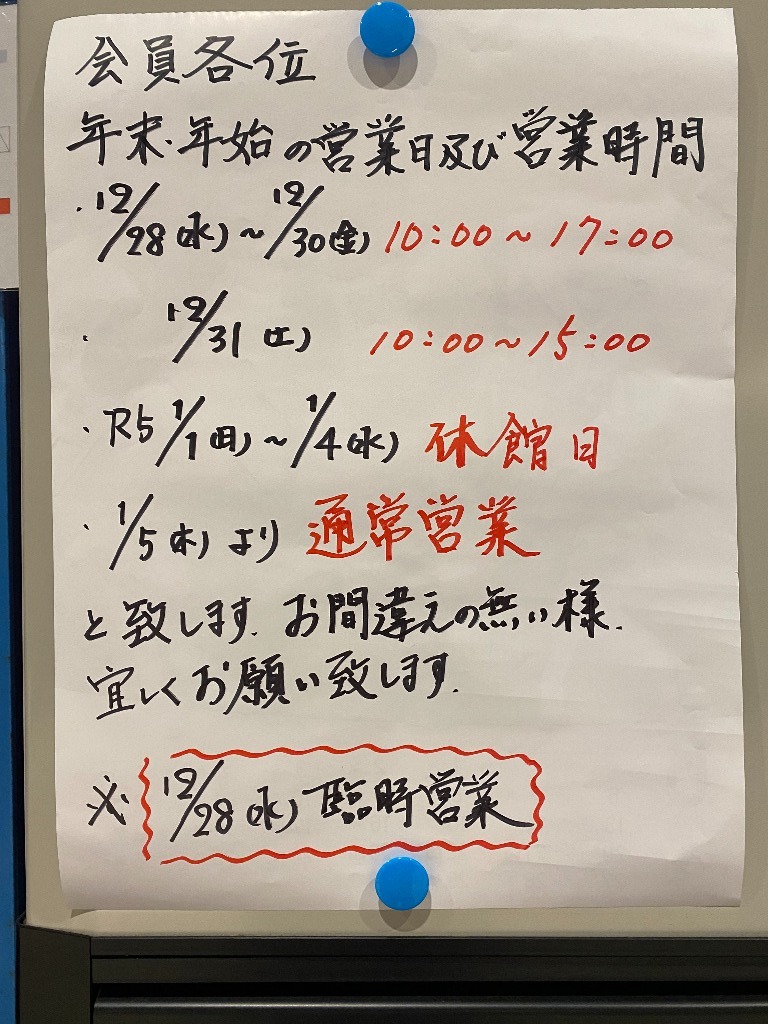 会員各位
年末.年始の営業日及び営業時間
・12/28(水)~12/30(金) 10:00~17:00
・12/31(土) 10:00~15:00
・R5 1/1(日)~1/4(水) 休館日
・1/5(木)より 通常営業
と致します. お間違えの無い様.
宜しくお願い致します.
※ 12/28(水)臨時営業